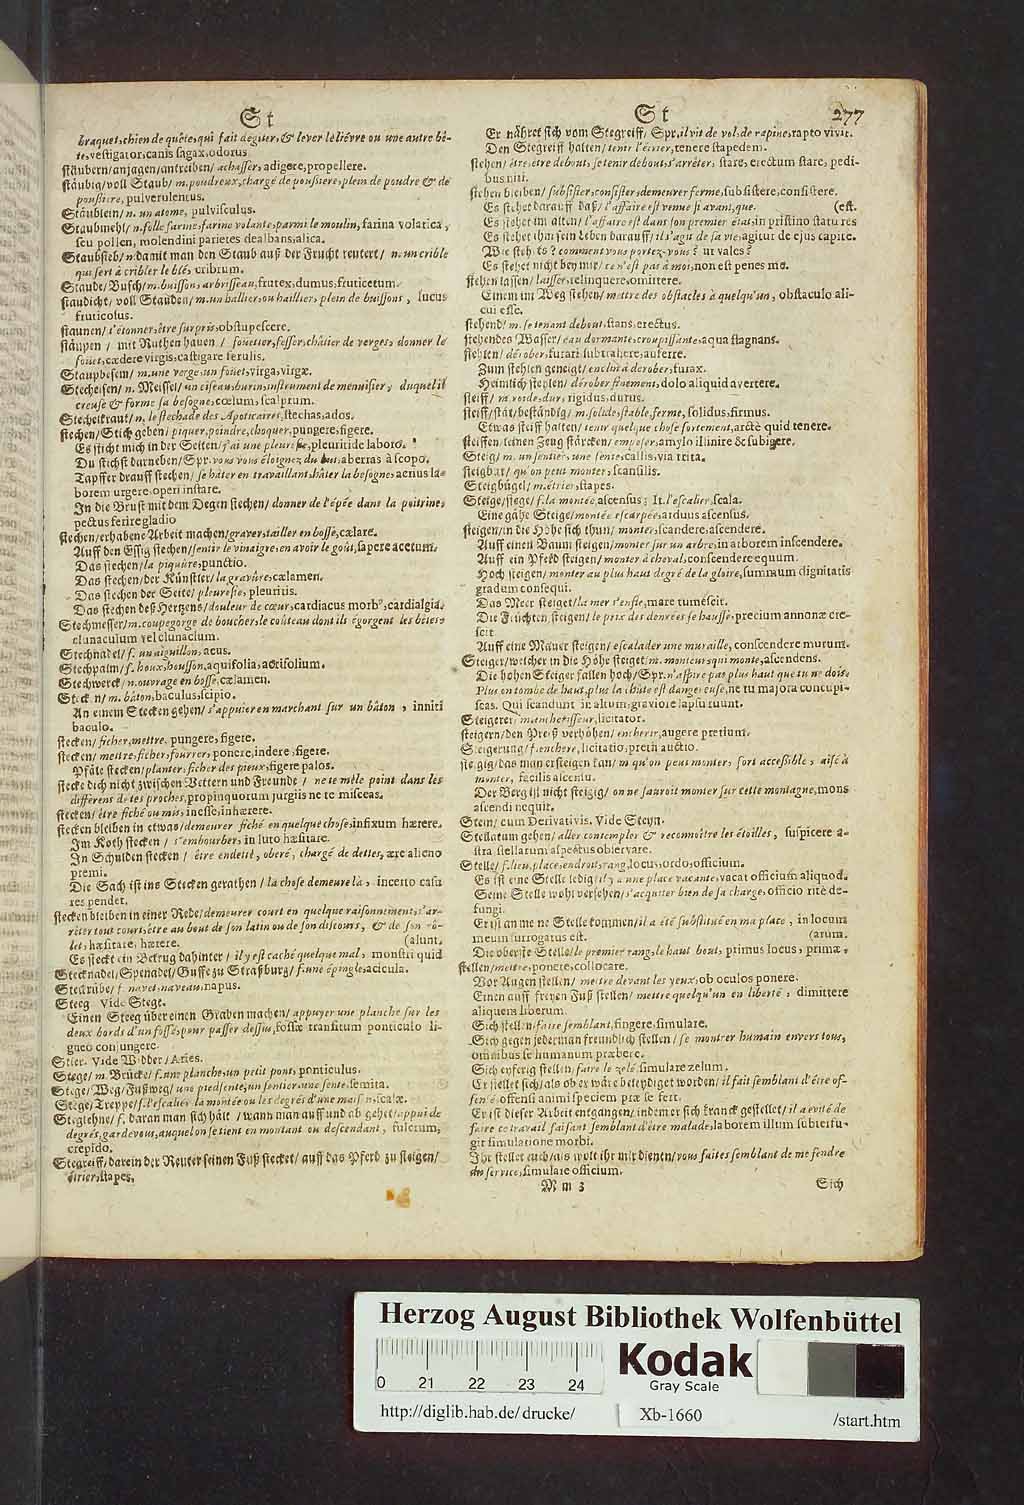 St
braquet, chien de quête, qui fait dégiter, & lever le liévre ou une autre bê-
te, vestigator, canis sagax, odorus
stäubern/anjagen/antreiben/ achasser, adigere, propellere.
stäubig/voll Staub/ m. poudreux, chargé de poussiere, plein de poudre & de
poussiere, pulverulentus.
Stäublein/ n. un atome, pulvisculus.
Staubmehl/ n. folle farine, farine volante, parmi le moulin, farina volatica,
seu pollen, molendini parietes dealbans, alica.
Staubsieb/ n. damit man den Staub auß der Frucht reutert/ n. un crible
qui sert à cribler le blé, cribrum.
Staude/ Busch/ m. buisson, arbrisseau, frutex, dumus, fruticetum.
staudicht/ voll Stauden/ m. un hallier, ou haillier, plein de buissons, lucus
fruticosus.
staunen/ s'étonner, être surpris, obstupescere.
stäupen/ mit Ruthen hauen/ fouetter, fesser, châtier de verges, donner le
fouet, cædere virgis, castigare ferulis.
Staupbesem/ m. une verge, un fouet, virga, virgæ.
Stecheisen/ n. Meissel/ un ciseau, burin, instrument de menuisier, duquel il
creuse & forme sa besogne, cœlum, scalprum.
Stechelkraut/ n. le stechade des Apoticaires, stechas, ados.
stechen/ Stich geben/ piquer, poindre, choquer, pungere, figere.
Es sticht mich in der Seiten/ j'ai une pleuresie, pleuritide laboro.
Du stichst darneben/ Spr. vous vous éloignez du but, aberras à scopo.
Tapffer drauff stechen/ se hâter en travaillant, hâter la besogne, acrius la-
borem urgere, operi instare.
In die Brust mit dem Degen stechen/ donner de l'épée dans la poitrine,
pectus ferire gladio
stechen/ erhabene Arbeit machen/ graver, tailler en bosse, cælare.
Auff den Essig stechen/ sentir le vinaigre, en avoir le goût, sapere acetum.
Das stechen/ la piquûre, punctio.
Das stechen/ der Künstler/ la gravûre, cælamen.
Das stechen der Seite/ pleuresie, pleuritis.
Das stechen deß Hertzens/ douleur de cœur, cardiacus morb9, cardialgia.
Stechmesser/ m. coupegorge de boucher, le coûteau dont ils égorgent les bêtes,
clunaculum vel clunaclum.
Stechnadel/ f. un aiguillon, acus.
Stechpalm/ f. houx, housson, aquifolia, acrifolium.
Stechwerck/ n. ouvrage en bosse, cælamen.
Stecken/ m. bâton, baculus, scipio.
An einem Stecken gehen/ s'appuier en marchant sur un bâton, inniti
baculo.
stecken/ ficher, mettre, pungere, figere.
stecken/ mettre, ficher, fourrer, ponere, indere, figere.
Pfäle stecken/ planter, ficher des pieux, figere palos.
stecke dich nicht zwischen Vettern und Freunde/ ne te mêle point dans les
différens de tes proches, propinquorum jurgiis ne te misceas.
stecken/ être fiché ou mis, inesse, inhærere.
stecken bleiben in etwas/ demeurer fiché en quelque chose, infixum hærere.
Im Koth stecken/ s'embourber, in luto hæsitare.
In Schulden stecken/ être endetté, oberé, chargé de dettes, ære alieno
premi.
Die Sach ist ins Stecken gerathen/ la chose demeure là, incerto casu
res pendet.
stecken bleiben in einer Rede/ demeurer court en quelque raisonnement, s'ar-
rêter tout court, être au bout de son latin ou de son discours, & de son rô-
let, hæsitare, hærere. (alunt.
Es steckt ein Betrug dahinter/ il y est caché quelque mal, monstri quid
Stecknadel/ Spenadel/ Guffe zu Straßburg/ f. une épingle, acicula.
Steckrübe/ f. navet, naveau, napus.
Steeg Vide Stege.
Einen Steeg über einen Graben machen/ appuyer une planche sur les
deux bords d'un fossé, pour passer dessus, fossæ transitum ponticulo li-
gneo conjungere.
Stier. Vide Widder/ Aries.
Stege/ m. Brücke/ f. une planche, un petit pont, ponticulus.
Stege/ Weg/ Fußweg/ une piedsente, un sentier, une sente, semita.
Stege/ Treppe/ f. l'escalier, la montée ou les degrés d'une maison, scalæ.
Steglehne/ f. daran man sich hält/ wann man auff und ab gehet/ appui de
degrés, gardevous, auquel on se tient en montant ou descendant, fulcrum,
crepido.
Stegreiff/ darein der Reuter seinen Fuß stecket/ auff das Pferd zu steigen/
étrier, stapes.
St
277
Er nähret sich vom Stegreiff/ Spr. il vit de vol, de rapine, rapto vivit.
Den Stegreiff halten/ tenir l'étrier, tenere stapedem.
stehen/ être, être debout, se tenir debout, s'arrêter, stare, erectum stare, pedi-
bus niti.
stehen bleiben/ subsister, consister, demeurer ferme, subsistere, consistere.
Es stehet darauff daß/ l'affaire est venue si avant, que. (est.
Es stehet im alten/ l'affaire est dans son premier état, in pristino statu res
Es stehet ihm sein Leben darauff/ il s'agit de sa vie, agitur de ejus capite.
Wie steht es? comment vous portez-vous? ut vales?
Es stehet nicht bey mir/ ce n'est pas à moi, non est penes me.
stehen lassen/ laisser, relinquere, omittere.
Einem im Weg stehen/ mettre des obstacles à quelqu'un, obstaculo ali-
cui esse.
stehend/ m. se tenant debout, stans, erectus.
stehendes Wasser/ eau dormante, croupissante, aqua stagnans.
stehlen/ dérober, furari, subtrahere, auferre.
Zum stehlen geneigt/ enclin à dérober, furax.
Heimlich stehlen/ dérober finement, dolo aliquid avertere.
steiff/ m. roide, dur, rigidus, durus.
steiff/ stät/ beständig/ m. solide, stable, ferme, solidus, firmus.
Etwas steiff halten/ tenir quelque chose fortement, arctè quid tenere.
steiffen/ leinen Zeug stärcken/ empeser, amylo illinire & subigere.
Steig/ m. un sentier, une sente, callis, via trita.
steigbar/ qu'on peut monter, scansilis.
Steigbügel/ m. étrier, stapes.
Steige/ stege/ f. la montée, ascensus; It. l'escalier, scala.
Eine gähe Steige/ montée escarpée, arduus ascensus.
steigen/ in die Höhe sich thun/ monter, scandere, ascendere.
Auff einen Baum steigen/ monter sur un arbre, in arborem inscendere.
Auff ein Pferd steigen/ monter à cheval, conscendere equum.
Hoch steigen/ monter au plus haut degré de la gloire, summum dignitatis
gradum consequi.
Das Meer steiget/ la mer s'enfle, mare tumescit.
Die Früchten steigen/ le prix des denrées se hausse, precium annonæ cre-
scit
Auff eine Mauer steigen/ escalader une muraille, conscendere murum.
Steiger/ welcher in die Höhe steiget/ m. monteur, qui monte, ascendens.
Die hohen Steiger fallen hoch/ Spr. n'aspire pas plus haut que tu ne dois.
Plus on tombe de haut, plus la chûte est dangereuse, ne tu majora concupi-
scas. Qui scandunt in altum, graviore lapsu ruunt.
Steigerer/ m. encherisseur, licitator.
steigern/ den Preiß verhöhen/ encherir, augere pretium.
Steigerung/ f. enchere, licitatio, pretii auctio.
steigig/ das man ersteigen kan/ m. qu'on peut monter, fort accessible, aisé à
monter, facilis ascensu.
Der Berg ist nicht steigig/ on ne sauroit monter sur cette montagne, mons
ascendi nequit.
Stein/ cum Derivativis. Vide Steyn.
Stellatum gehen/ aller contempler & reconnoître les étoiles, suspicere a-
stra stellarum aspectus observare.
Stelle/ f. lieu, place, endroit, rang, locus, ordo, officium.
Es ist eine Stelle ledig/ il y a une place vacante, vacat officium aliquod.
Seine Stelle wohl versehen/ s'acquiter bien de sa charge, officio ritè de-
fungi.
Er ist an meine Stelle kommen/ il a été substitué en ma place, in locum
meum surrogatus est. (arum.
Die oberste Stelle/ le premier rang, le haut bout, primus locus, primæ,
stellen/ mettre, ponere, collocare.
Vor Augen stellen/ mettre devant les yeux, ob oculos ponere.
Einen auff freyen Fuß stellen/ mettre quelqu'un en liberté, dimittere
aliquem liberum.
Sich stellen/ faire semblant, fingere, simulare.
Sich gegen jederman freundlich stellen/ se montrer humain envers tous,
omnibus se humanum præbere.
Sich eyferig stellen/ faire le zelé, simulare zelum.
Er stellet sich/ als ob er wäre beleydiget worden/ il fait semblant d'être of-
fensé, offensi animi speciem præ se fert.
Er ist dieser Arbeit entgangen/ indem er sich kranck gestellet/ il a évité de
faire ce travail faisant semblant d'être malade, laborem illum subterfu-
git simulatione morbi.
Ihr stellet euch/ als wolt ihr mir dienen/ vous faites semblant de me rendre
du service, simulare officium.
M m 3
Sich
Herzog August Bibliothek Wolfenbüttel
Kodak
Gray Scale
0 21 22 23 24
http://diglib.hab.de/drucke/
Xb-1660
/start.htm